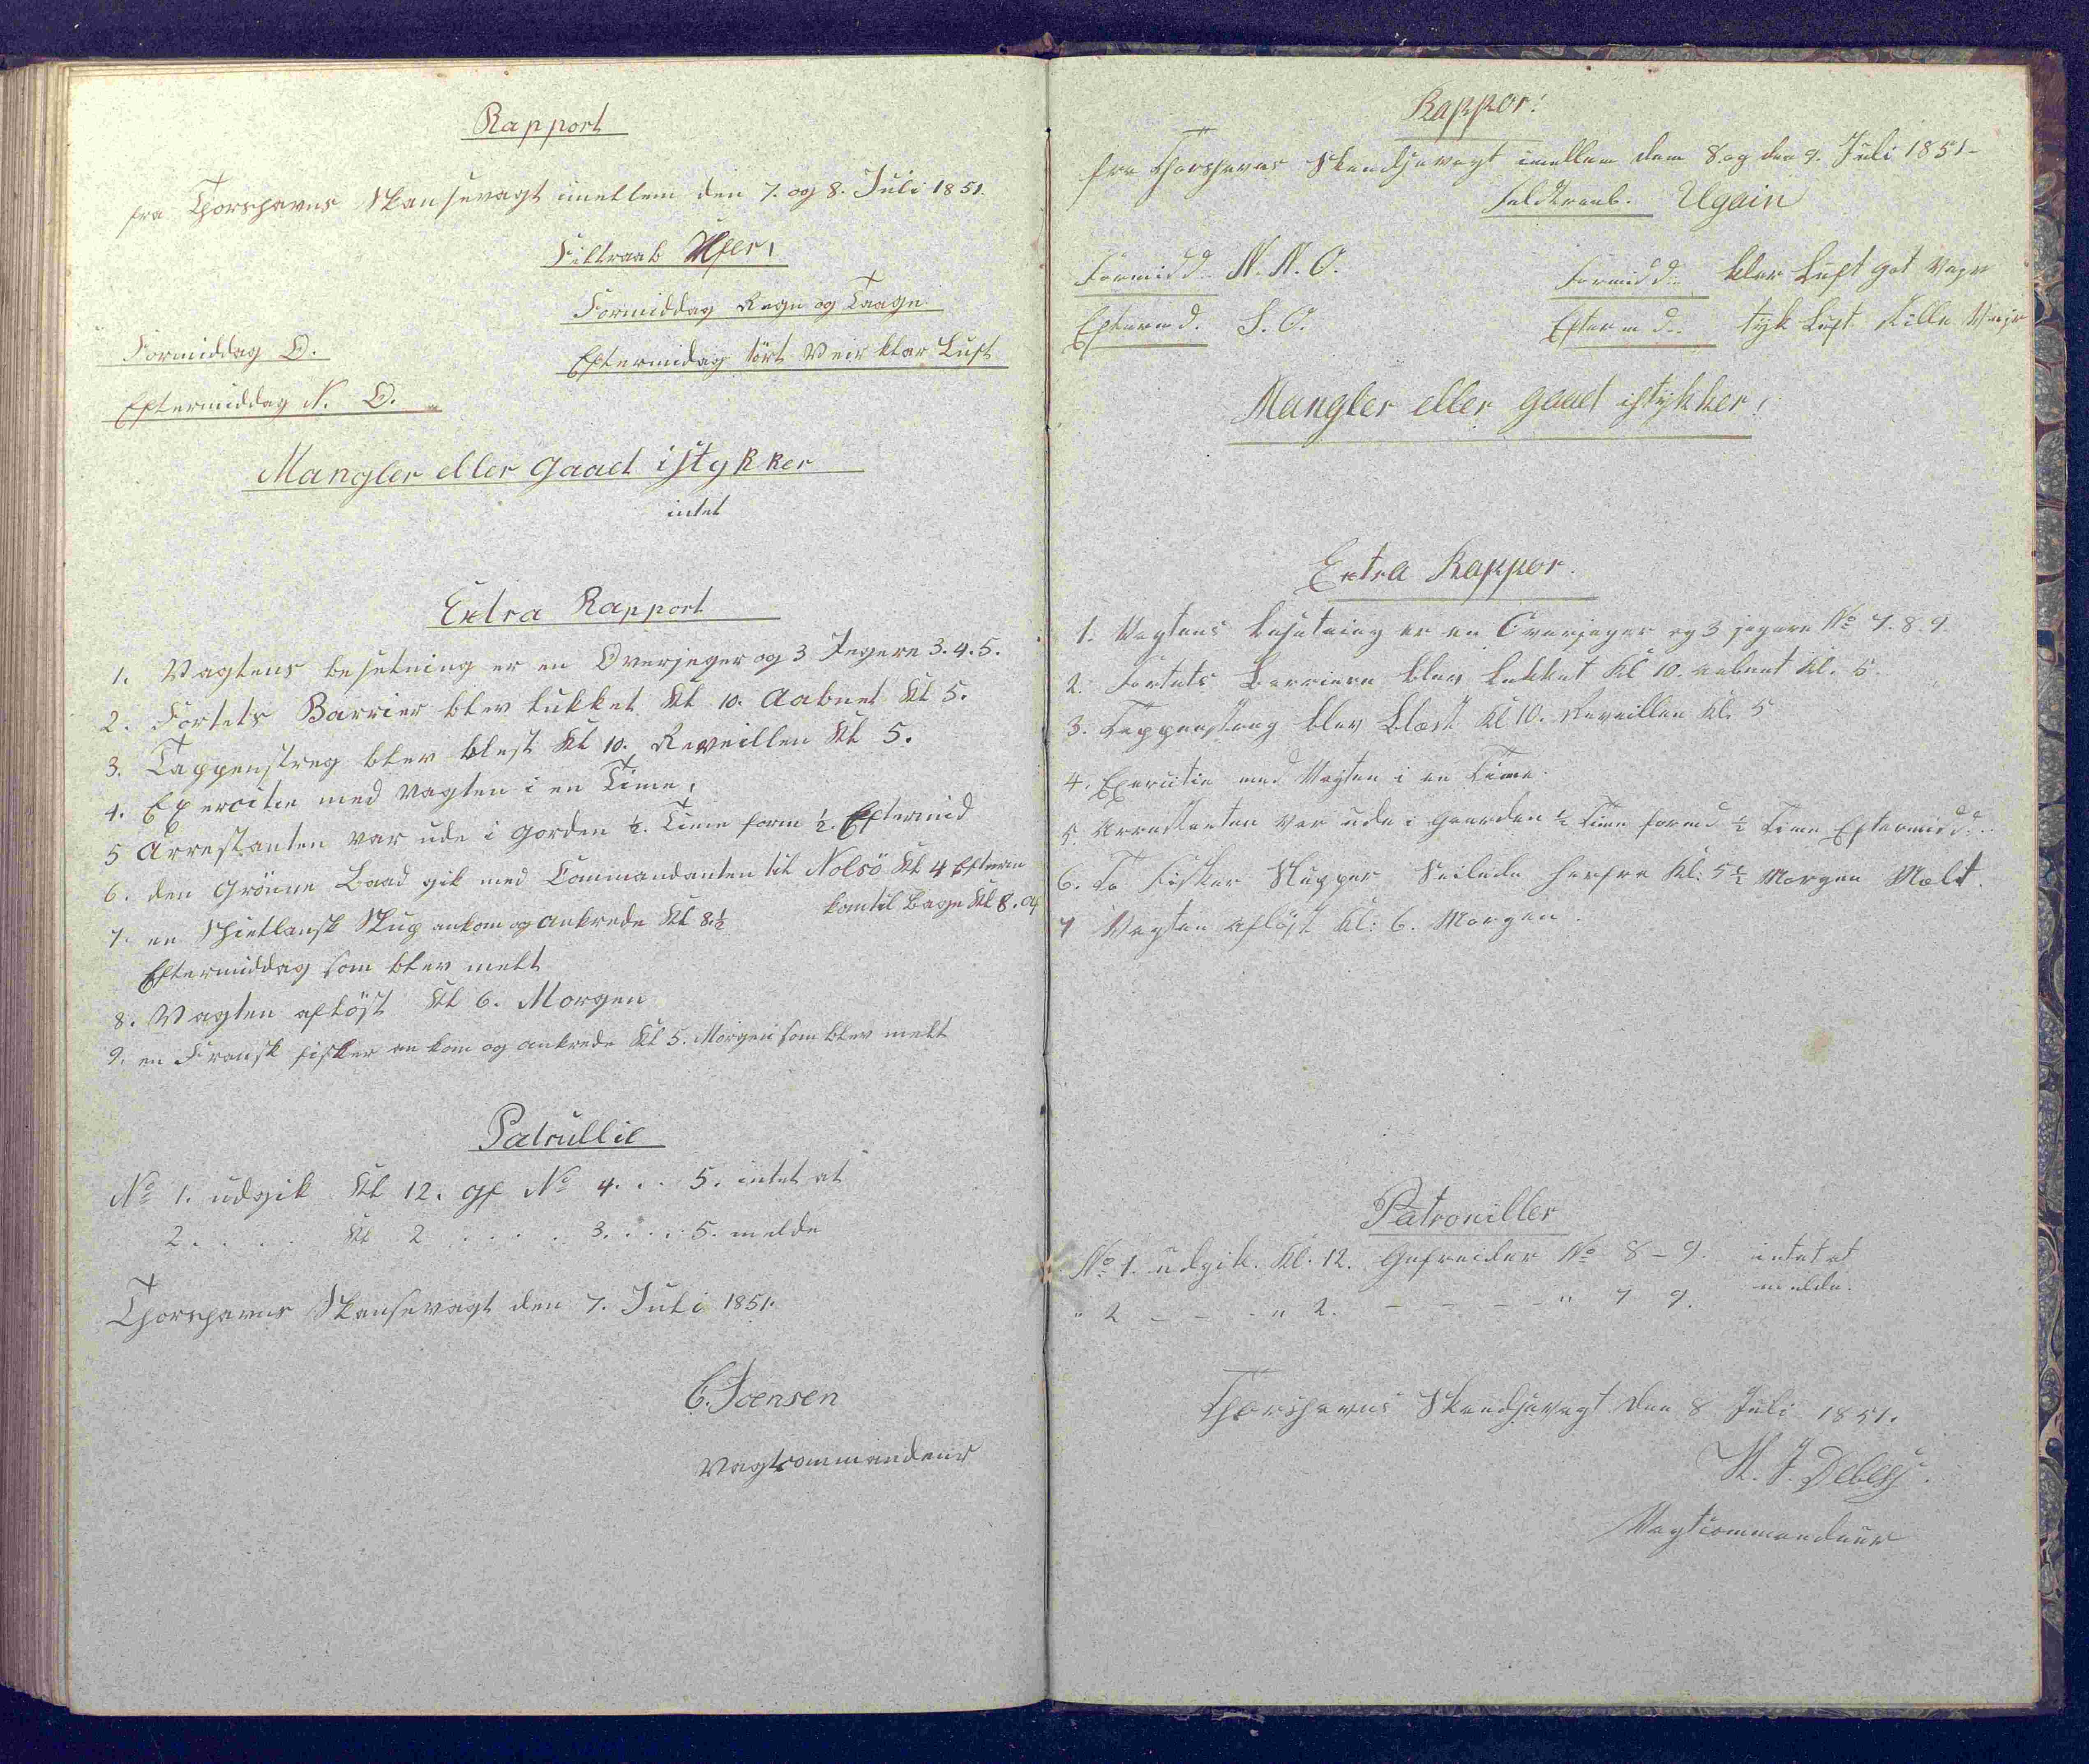 Rapport
fra Thorshavns Skansevagt imellem den 7. og 8. Juli 1851.
Feltraab Ufer,
Formiddag Regn og Taage
Formiddag O.
Eftermidag tört Veir klar Luft
Eftermiddag N. O.
Mangler eller gaaet istykker
intet
Extra Rapport
1. Vagtens besetning er en Overjeger og 3 Jegere 3. 4. 5.
2. Fortets Barrier blev lukket Kl 10. Aabnet Kl 5.
3. Tappenstreg blev blest Kl 10. Reveillen Kl 5.
4. Exercitie med Vagten i en Time,
5 Arrestanten var ude i gorden ½. Time form ½. Eftermid
6. den Grönne Baad gik med Commandanten til Nolsö Kl 4 Efterm
kom til bage Kl 8. Af
7. en Schietlansk Slup ankom og ankrede Kl 8½
Eftermiddag som blev melt
8. Vagten aflöst Kl 6. Morgen
9. en Fransk fisker an kom og ankrede Kl 5. Morgen som blev melt
Patrullie
No 1. udgik Kl 12. gf No 4. . . 5. intet at
2. . . . . Kl 2 . . . . . 3. . . . 5. melde
Thorshavns Skansevagt den 7. Juli 1851.
C. Joensen
Vagtcommandeur
Rappor:
fra Thorshavns Skandsevagt imellem dem 8. og den 9. Juli 1851-
Feldtraab. Ugain
Formidd. N. N. O. Formidd. klar Luft got Vejr
Eftermd. S. O. Eftermd. tyk Luft stille Vejr
Mangler eller gaaet istykker,
Extra Rappor.
1. Vagtens besetning er en Overjeger og 3 jegere No 7. 8. 9.
2. Fortets Barriere blev lukket Kl 10. aabnet Kl. 5.
3. Tappenstreg blev blæst Kl 10. Reveillen Kl. 5
4. Exercitie med Vagten i en Time.
5. Arrestanten var ude i Gaarden ½ Time formd ½ Time Eftermidd.
6. To Fisker Slupper Seilede herfra Kl: 5½ Morgen Mælt.
7 Vagten aflöst Kl: 6. Morgen.
Patroniller
No 1. udgik. Kl. 12. Gefreider No 8 - 9. intet at
" 2 - - - " 2. - - - - " 7 9. melde.
Thorshavns Skandsevagt den 8 Juli 1851.
Debess.
Vagtcommandeur